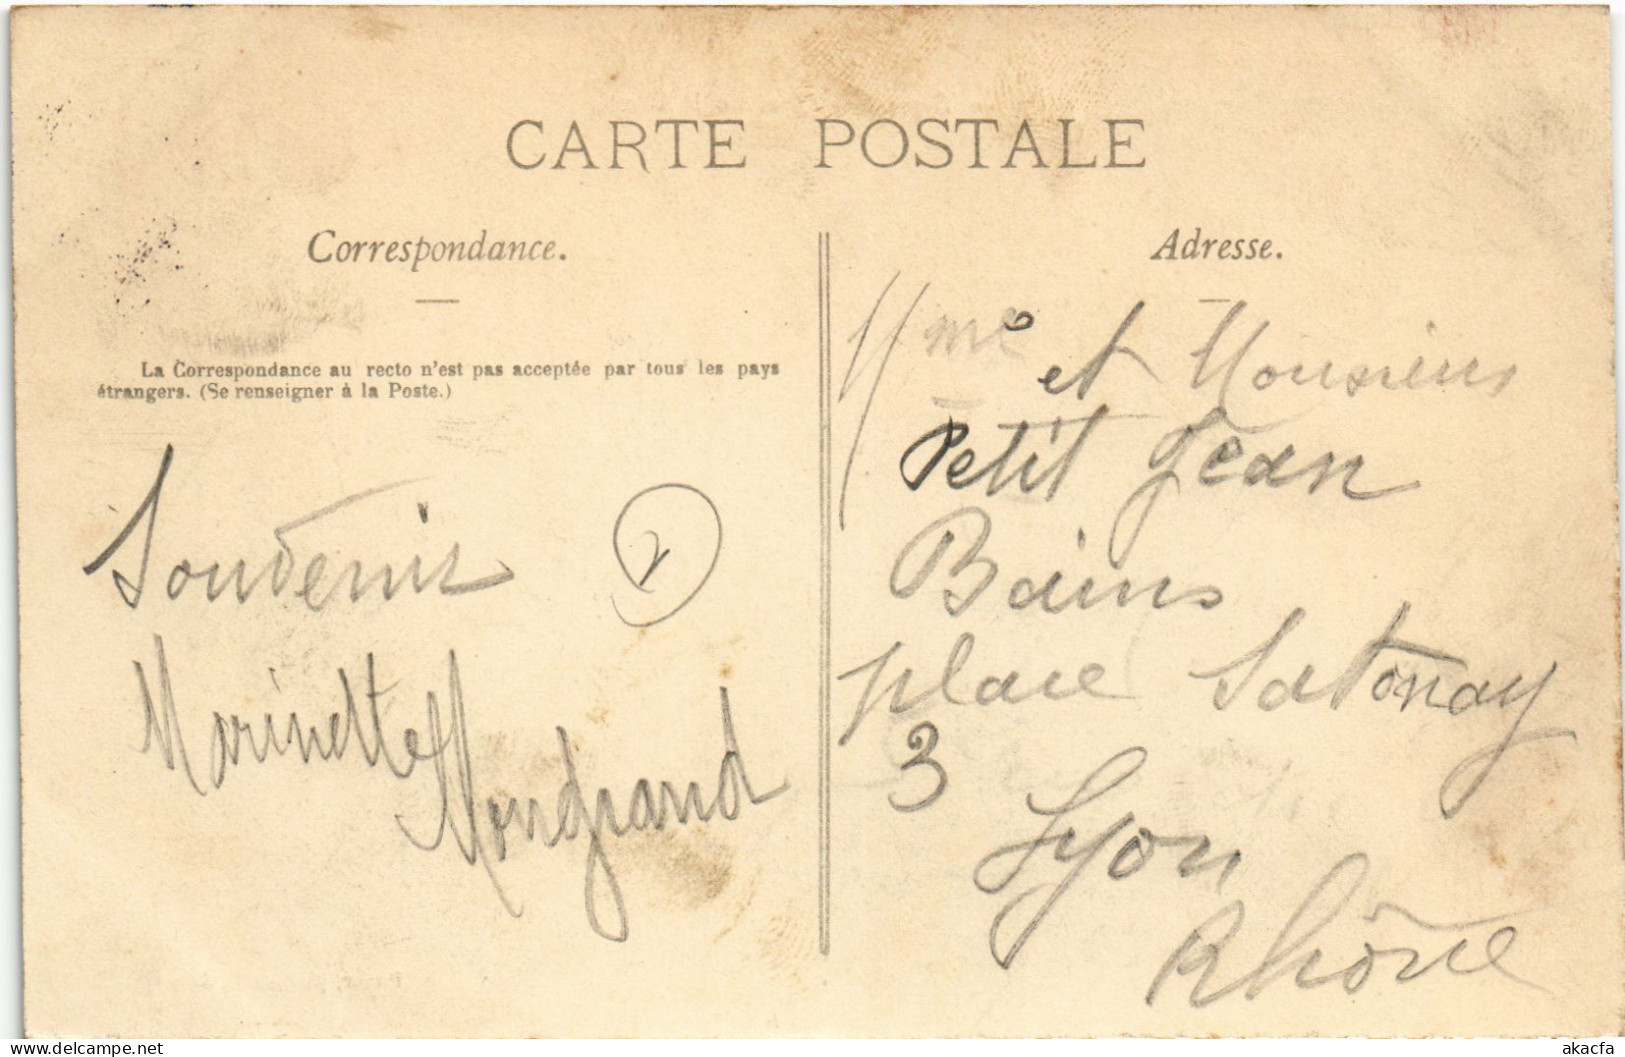 CARTE POSTALE
Correspondance.
La Correspondance au recto n'est pas acceptée par tous les pays
étrangers. (Se renseigner à la Poste.)
Souvenir
Marinette
Mongrand
Adresse.
Mme et Monsieur
Petit Jean
Bains
place Satonay
3
Lyon
Rhône
www.delcampe.net
akacfa